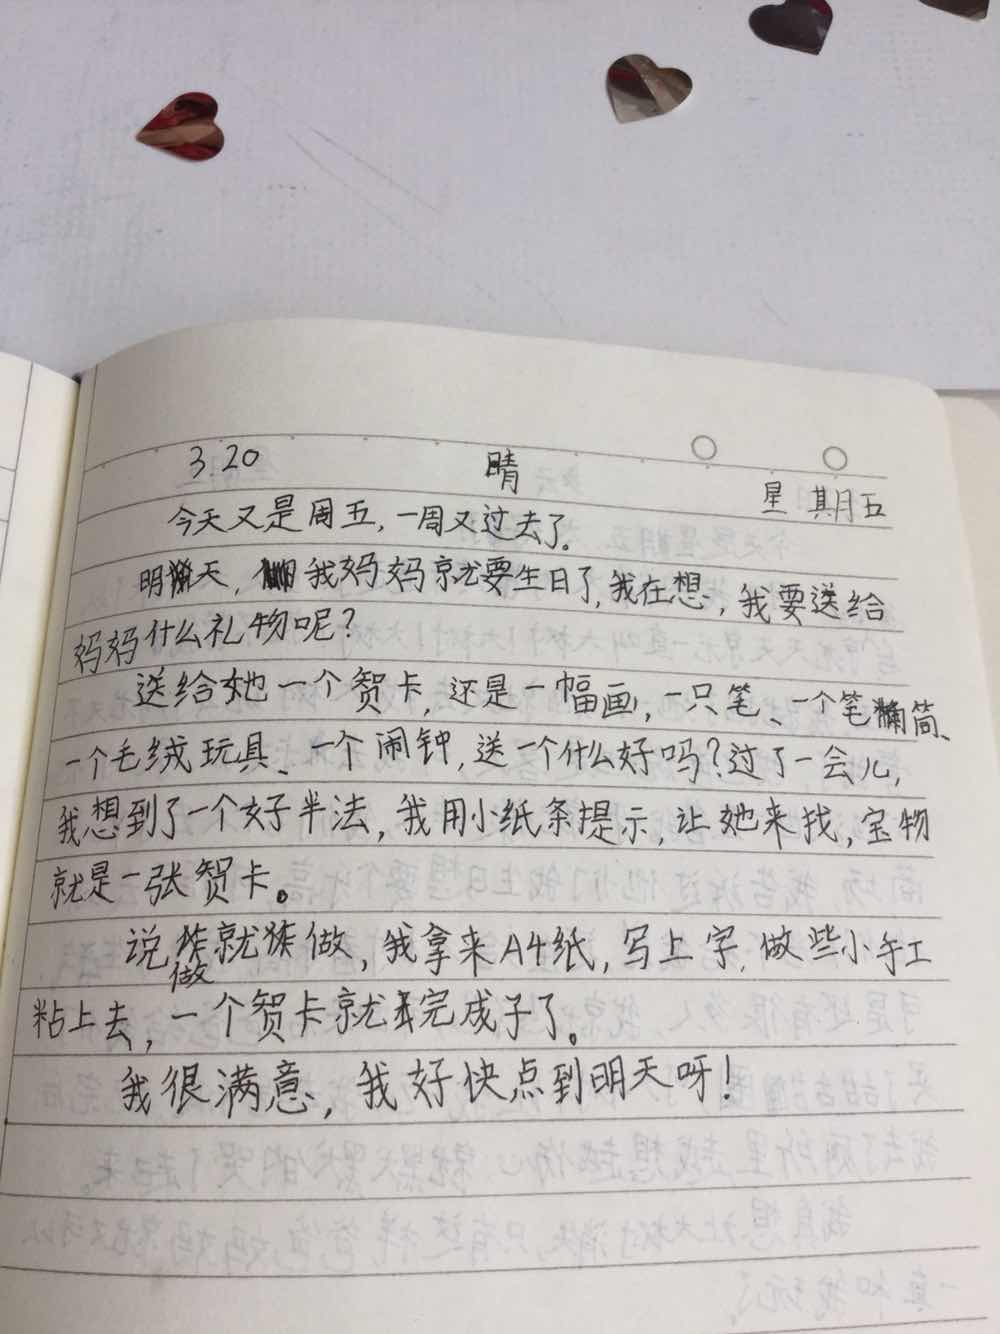 3.20 晴 星期五
今天又是周五,一周又过去了。
明天,我妈妈就要生日了,我在想,我要送给
妈妈什么礼物呢?
送给她一个贺卡,还是一幅画,一只笔、一个笔筒、
一个毛绒玩具、一个闹钟,送一个什么好吗?过了一会儿,
我想到了一个好半法,我用小纸条提示,让她来找,宝物
就是一张贺卡。
说做就做,我拿来A4纸,写上字,做些小手工
粘上去,一个贺卡就完成子了。
我很满意,我好快点到明天呀!